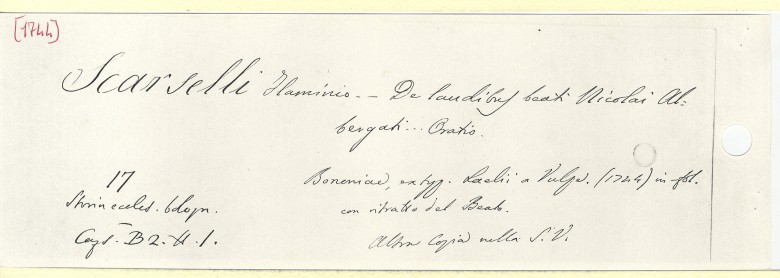 [1744]
Scarselli Flaminio. – De laudibus beati Nicolai Al-
bergati... Oratio.
Bononiae, ex typ. Laelii a Vulpe. (1744) in fol.
con ritratto del Beato.
Altra Copia nella S.V.
17
Storia eccles. bologn.
Caps. B2. N. 1.